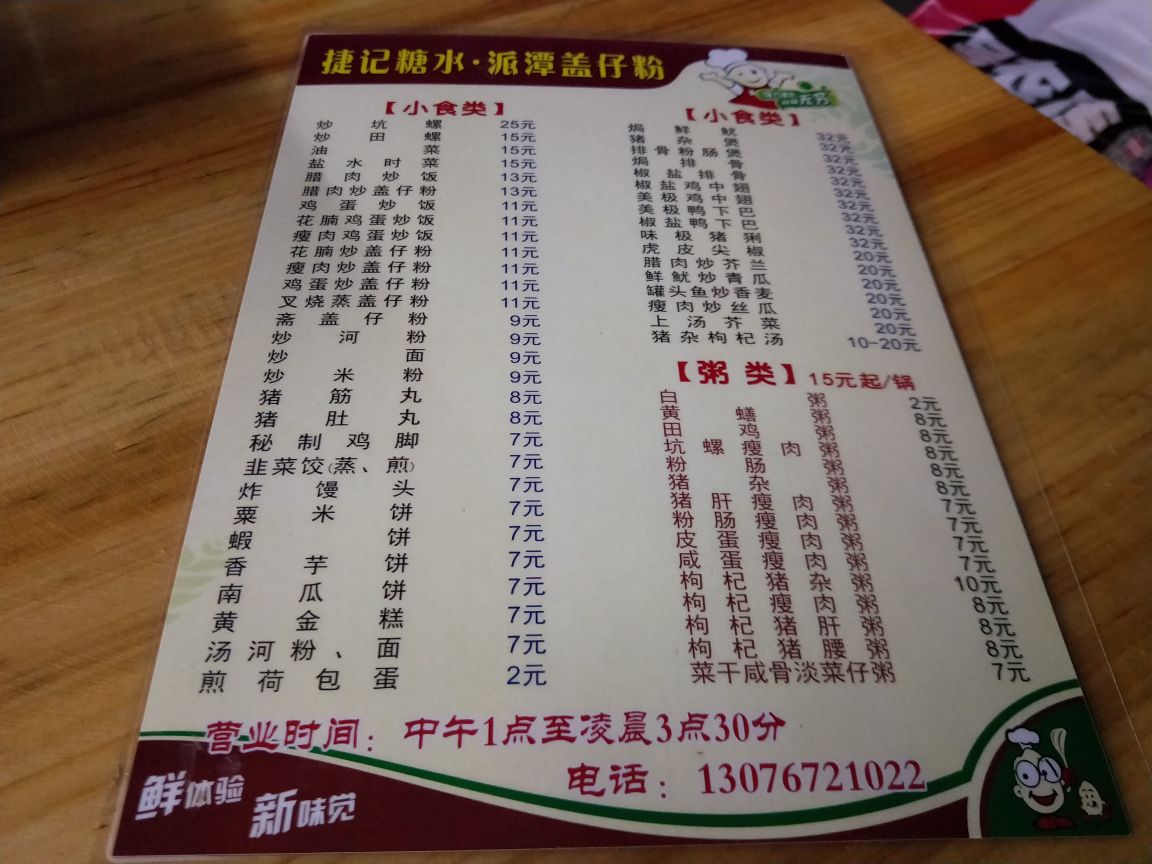 捷记糖水·派潭盖仔粉
【小食类】
炒坑螺 25元
炒田螺 15元
油菜 15元
盐水时菜 15元
腊肉炒饭 13元
腊肉炒盖仔粉 13元
鸡蛋炒饭 11元
花腩鸡蛋炒饭 11元
瘦肉鸡蛋炒饭 11元
花腩炒盖仔粉 11元
瘦肉炒盖仔粉 11元
鸡蛋炒盖仔粉 11元
叉烧蒸盖仔粉 11元
斋盖仔粉 9元
炒河粉 9元
炒面 9元
炒米粉 9元
猪筋丸 8元
猪肚丸 8元
秘制鸡脚 7元
韭菜饺(蒸、煎) 7元
炸馒头 7元
粟米饼 7元
蝦饼 7元
香芋饼 7元
南瓜饼 7元
黄金糕 7元
汤河粉、面 7元
煎荷包蛋 2元
【小食类】
焗鲜鱿 32元
猪杂煲 32元
排骨粉肠煲 32元
焗排骨 32元
椒盐排骨 32元
椒盐鸡中翅 32元
美极鸡中翅 32元
美极鸭下巴 32元
椒盐鸭下巴 32元
味极猪猁 32元
虎皮尖椒 20元
腊肉炒芥兰 20元
鲜鱿炒青瓜 20元
罐头鱼炒香麦 20元
瘦肉炒丝瓜 20元
上汤芥菜 20元
猪杂枸杞汤 10-20元
【粥类】15元起/锅
白粥 2元
黄鳝粥 8元
田鸡粥 8元
坑螺瘦肉粥 8元
粉肠粥 8元
猪杂粥 8元
猪肝瘦肉粥 7元
粉肠瘦肉粥 7元
皮蛋瘦肉粥 7元
咸蛋瘦肉粥 7元
枸杞猪杂粥 10元
枸杞瘦肉粥 8元
枸杞猪肝粥 8元
枸杞猪腰粥 8元
菜干咸骨淡菜仔粥 7元
营业时间：中午1点至凌晨3点30分
电话：13076721022
鲜体验
新味觉